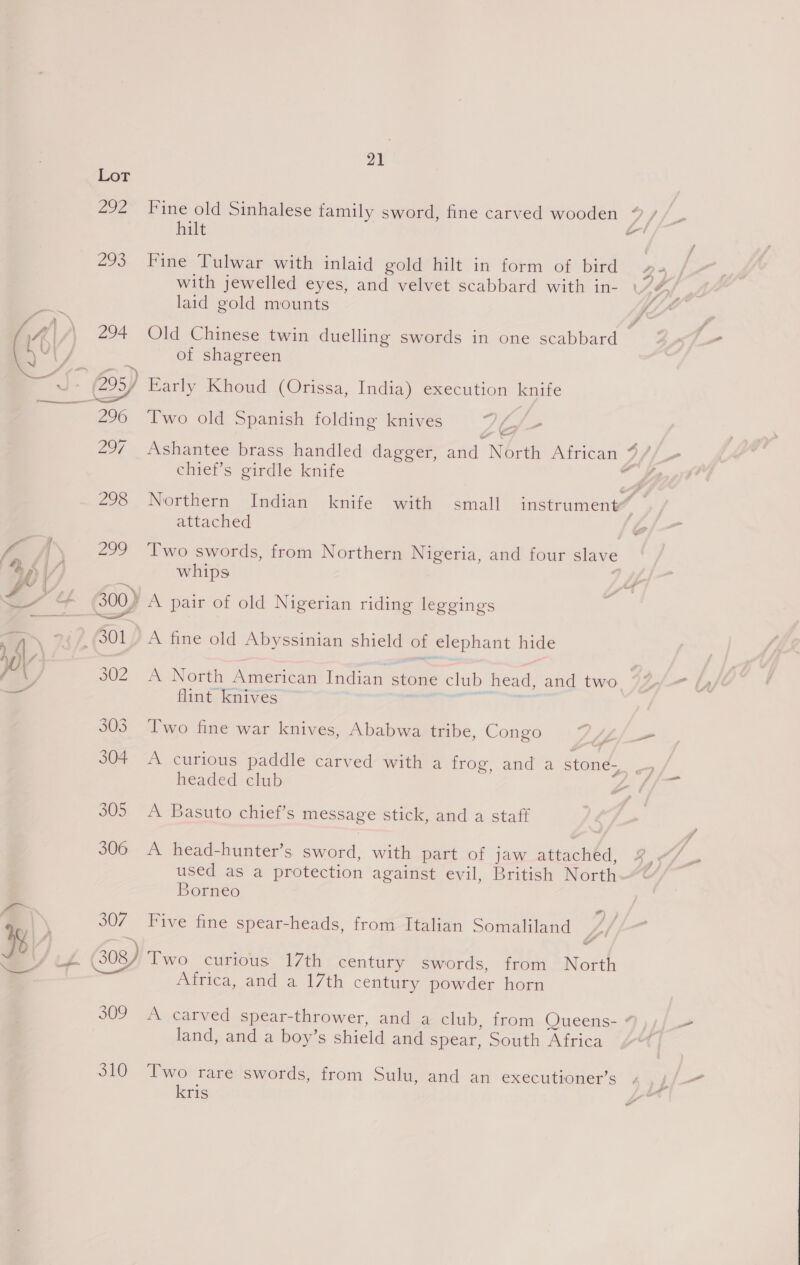 21
Lot
292 Fine old Sinhalese family sword, fine carved wooden
hilt
293 Fine Tulwar with inlaid gold hilt in form of bird
with jewelled eyes, and velvet scabbard with in-
laid gold mounts
294 Old Chinese twin duelling swords in one scabbard
of shagreen
295 Early Khoud (Orissa, India) execution knife
296 Two old Spanish folding knives
297 Ashantee brass handled dagger, and North African
chief's girdle knife
298 Northern Indian knife with small instrument
attached
299 Two swords, from Northern Nigeria, and four slave
whips
300 A pair of old Nigerian riding leggings
301 A fine old Abyssinian shield of elephant hide
302 A North American Indian stone club head, and two
flint knives
303 Two fine war knives, Ababwa tribe, Congo
304 A curious paddle carved with a frog, and a stone-
headed club
305 A Basuto chief's message stick, and a staff
306 A head-hunter's sword, with part of jaw attached,
used as a protection against evil, British North
Borneo
307 Five fine spear-heads, from Italian Somaliland
308 Two curious 17th century swords, from North
Africa, and a 17th century powder horn
309 A carved spear-thrower, and a club, from Queens-
land, and a boy's shield and spear, South Africa
310 Two rare swords, from Sulu, and an executioner's
kris